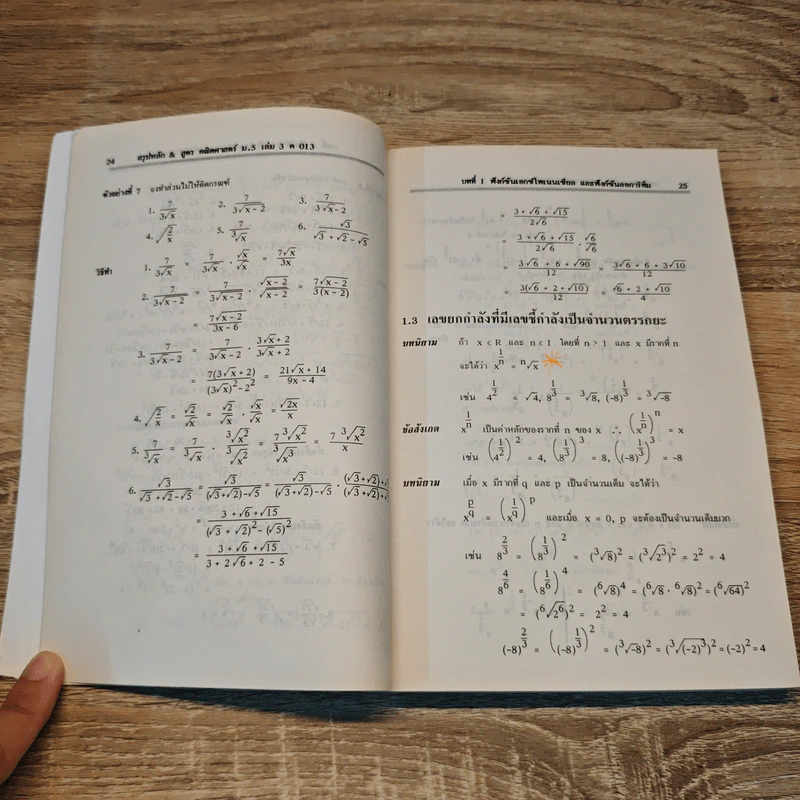 24 สรุปหลัก & สูตร คณิตศาสตร์ ม.5 เล่ม 3 ค 013
ตัวอย่างที่ 7 จงทำส่วนไม่ให้ติดกรณฑ์
1. 7/(3√x) 2. 7/(3√(x-2)) 3. 7/(3√x-2)
4. √(2/x) 5. 7/∛x 6. √3/(√3+√2-√5)
วิธีทำ 1. 7/(3√x) = 7/(3√x) · √x/√x = 7√x/3x
2. 7/(3√(x-2)) = 7/(3√(x-2)) · √(x-2)/√(x-2) = 7√(x-2)/3(x-2)
= 7√(x-2)/(3x-6)
3. 7/(3√x-2) = 7/(3√x-2) · (3√x+2)/(3√x+2)
= 7(3√x+2)/((3√x)²-2²) = (21√x+14)/(9x-4)
4. √(2/x) = √2/√x = √2/√x · √x/√x = √(2x)/x
5. 7/∛x = 7/∛x · ∛x²/∛x² = 7∛x²/∛x³ = 7∛x²/x
6. √3/(√3+√2-√5) = √3/((√3+√2)-√5) = √3/((√3+√2)-√5) · ((√3+√2)+√
= (3+√6+√15)/((√3+√2)²-(√5)²)
= (3+√6+√15)/(3+2√6+2-5)
บทที่ 1 ฟังก์ชันเอกซ์โพเนนเชียล และฟังก์ชันลอการิทึม 25
= (3+√6+√15)/(2√6)
= (3+√6+√15)/(2√6) · √6/√6
= (3√6+6+√90)/12 = (3√6+6+3√10)/12
= 3(√6+2+√10)/12 = (√6+2+√10)/4
1.3 เลขยกกำลังที่มีเลขชี้กำลังเป็นจำนวนตรรกยะ
บทนิยาม ถ้า x ∈ R และ n ∈ I โดยที่ n > 1 และ x มีรากที่ n
จะได้ว่า x^(1/n) = ⁿ√x
เช่น 4^(1/2) = √4, 8^(1/3) = ³√8, (-8)^(1/3) = ³√-8
ข้อสังเกต x^(1/n) เป็นค่าหลักของรากที่ n ของ x ∴ (x^(1/n))^n = x
เช่น (4^(1/2))^2 = 4, (8^(1/3))^3 = 8, ((-8)^(1/3))^3 = -8
บทนิยาม เมื่อ x มีรากที่ q และ p เป็นจำนวนเต็ม จะได้ว่า
x^(p/q) = (x^(1/q))^p และเมื่อ x = 0, p จะต้องเป็นจำนวนเต็มบวก
เช่น 8^(2/3) = (8^(1/3))^2 = (³√8)² = (³√2³)² = 2² = 4
8^(4/6) = (8^(1/6))^4 = (⁶√8)⁴ = (⁶√8 · ⁶√8)² = (⁶√64)²
= (⁶√2⁶)² = 2² = 4
(-8)^(2/3) = ((-8)^(1/3))^2 = (³√-8)² = (³√(-2)³)² = (-2)² = 4